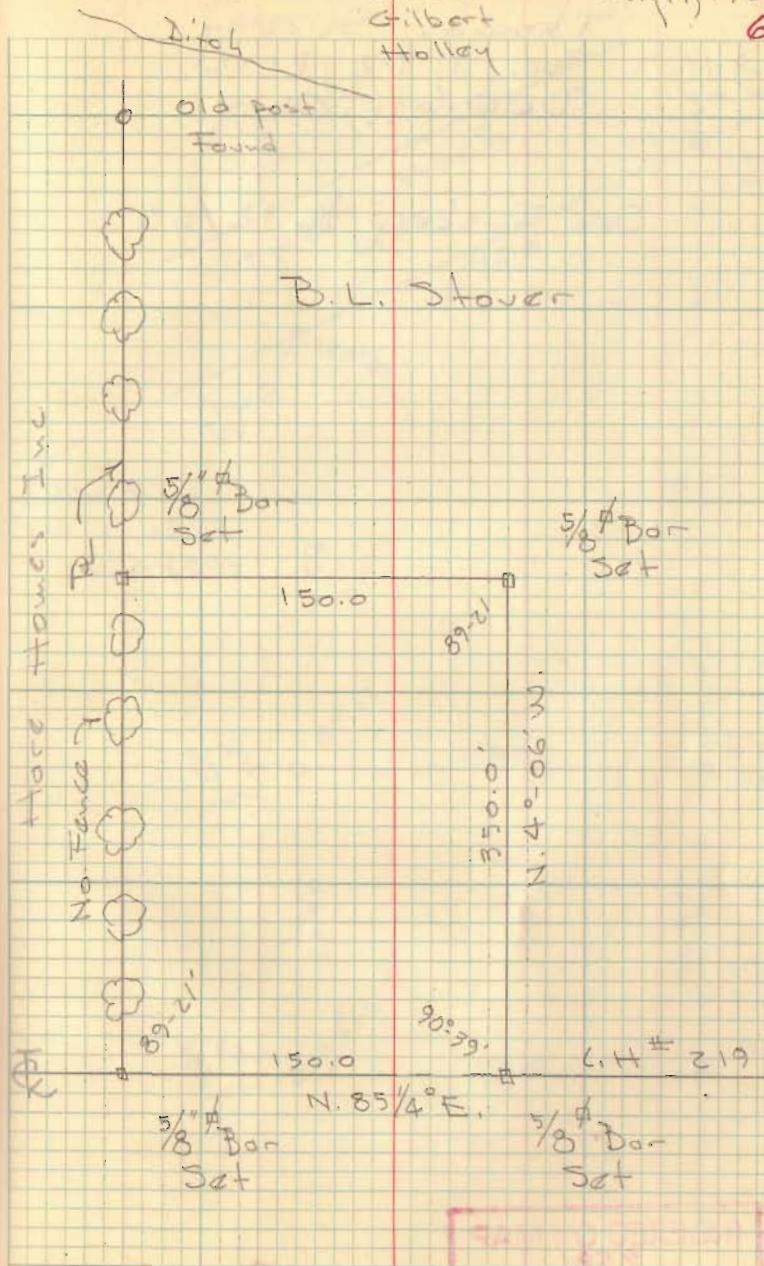 Ditch
Gilbert
Holley
6
old post
Found
B.L. Stover
Hare Homes Inc
5/8" ϕ Bar
Set
5/8 ϕ Bar
Set
PL
150.0
89-21
350.0'
N. 4°-06' W.
No Fence
89-21'
90°39'
150.0
C.H # 219
N. 85 1/4° E.
5/8" ϕ Bar
Set
5/8 ϕ Bar
Set